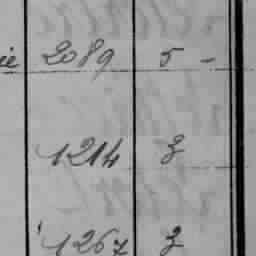 ie 2089 5 -
1214 3
1267 3